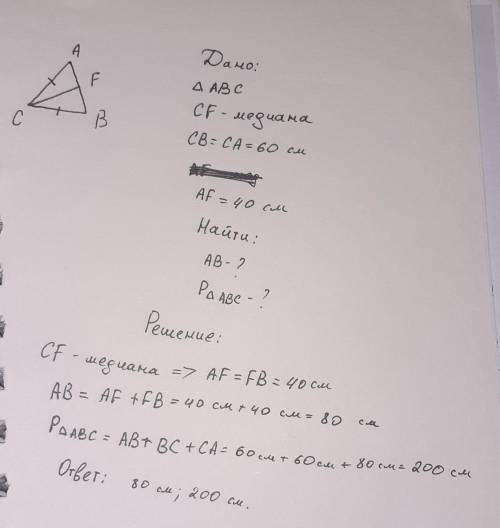 A
F
C
B
Дано:
△ ABC
CF - медиана
CB = CA = 60 см
AF = 40 см
Найти:
AB - ?
P△ ABC - ?
Решение:
CF - медиана => AF = FB = 40 см
AB = AF + FB = 40 см + 40 см = 80 см
P△ ABC = AB + BC + CA = 60 см + 60 см + 80 см = 200 см
Ответ: 80 см; 200 см.